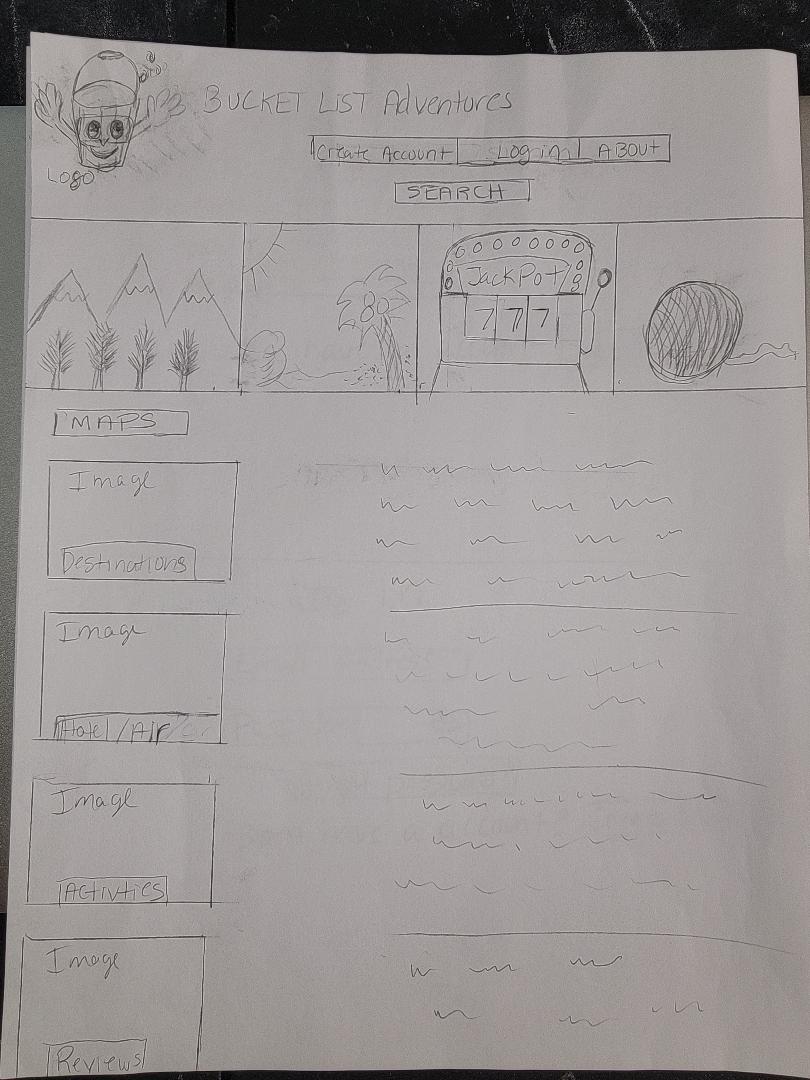 BUCKET LIST Adventures
Create Account Log in ABOUT
LOGO
SEARCH
JackPot
7 7 7
MAPS
Image
Destinations
Image
Hotel/Air/Car
Image
Activties
Image
Reviews